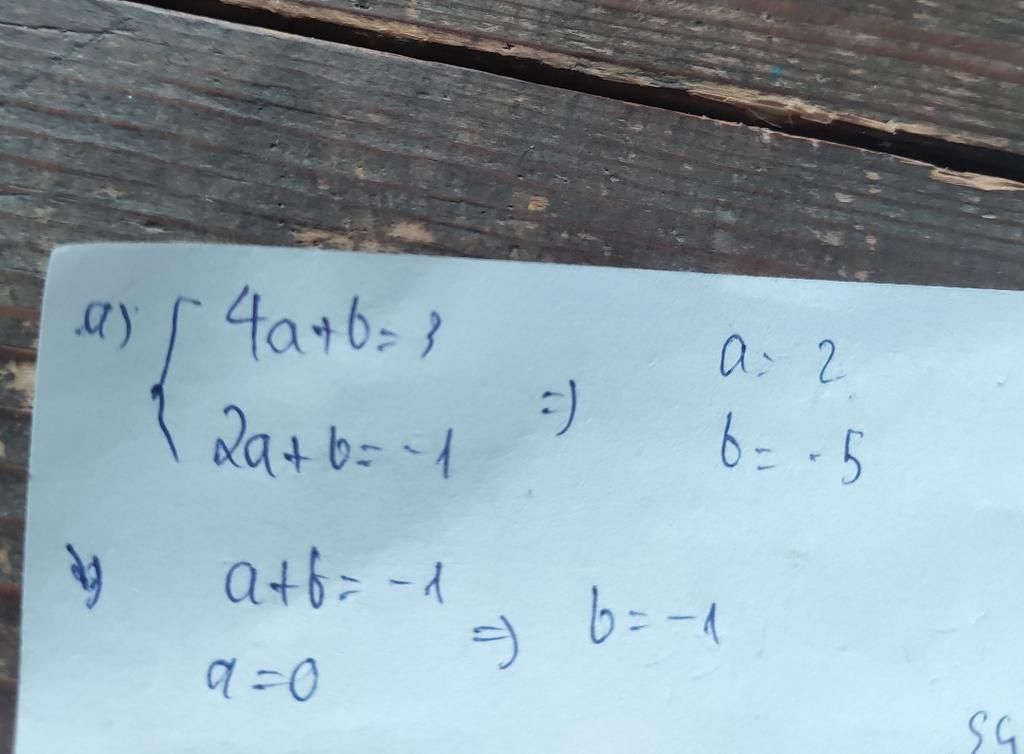 a) { 4a+b=3
2a+b=-1 => a=2
b=-5
b) a+b=-1
a=0 => b=-1